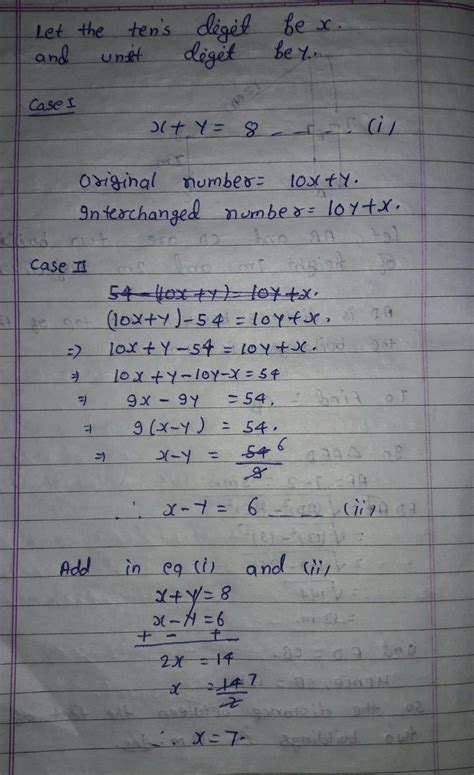 Let the ten's digit be x.
and unit digit be y.
Case I
x + y = 8 - - - - (i)
Original number = 10x+y.
Interchanged number = 10y+x.
Case II
54-(10x+y) = 10y+x.
(10x+y)-54 = 10y+x.
=> 10x+y-54 = 10y+x.
=> 10x+y-10y-x = 54
=> 9x-9y = 54.
=> 9(x-y) = 54.
=> x-y = 54/9 6
∴ x-y = 6 - - - (ii)
Add in eq (i) and (ii)
x+y = 8
x-y = 6
+ - +
2x = 14
x = 14/2 7
∴ x = 7.